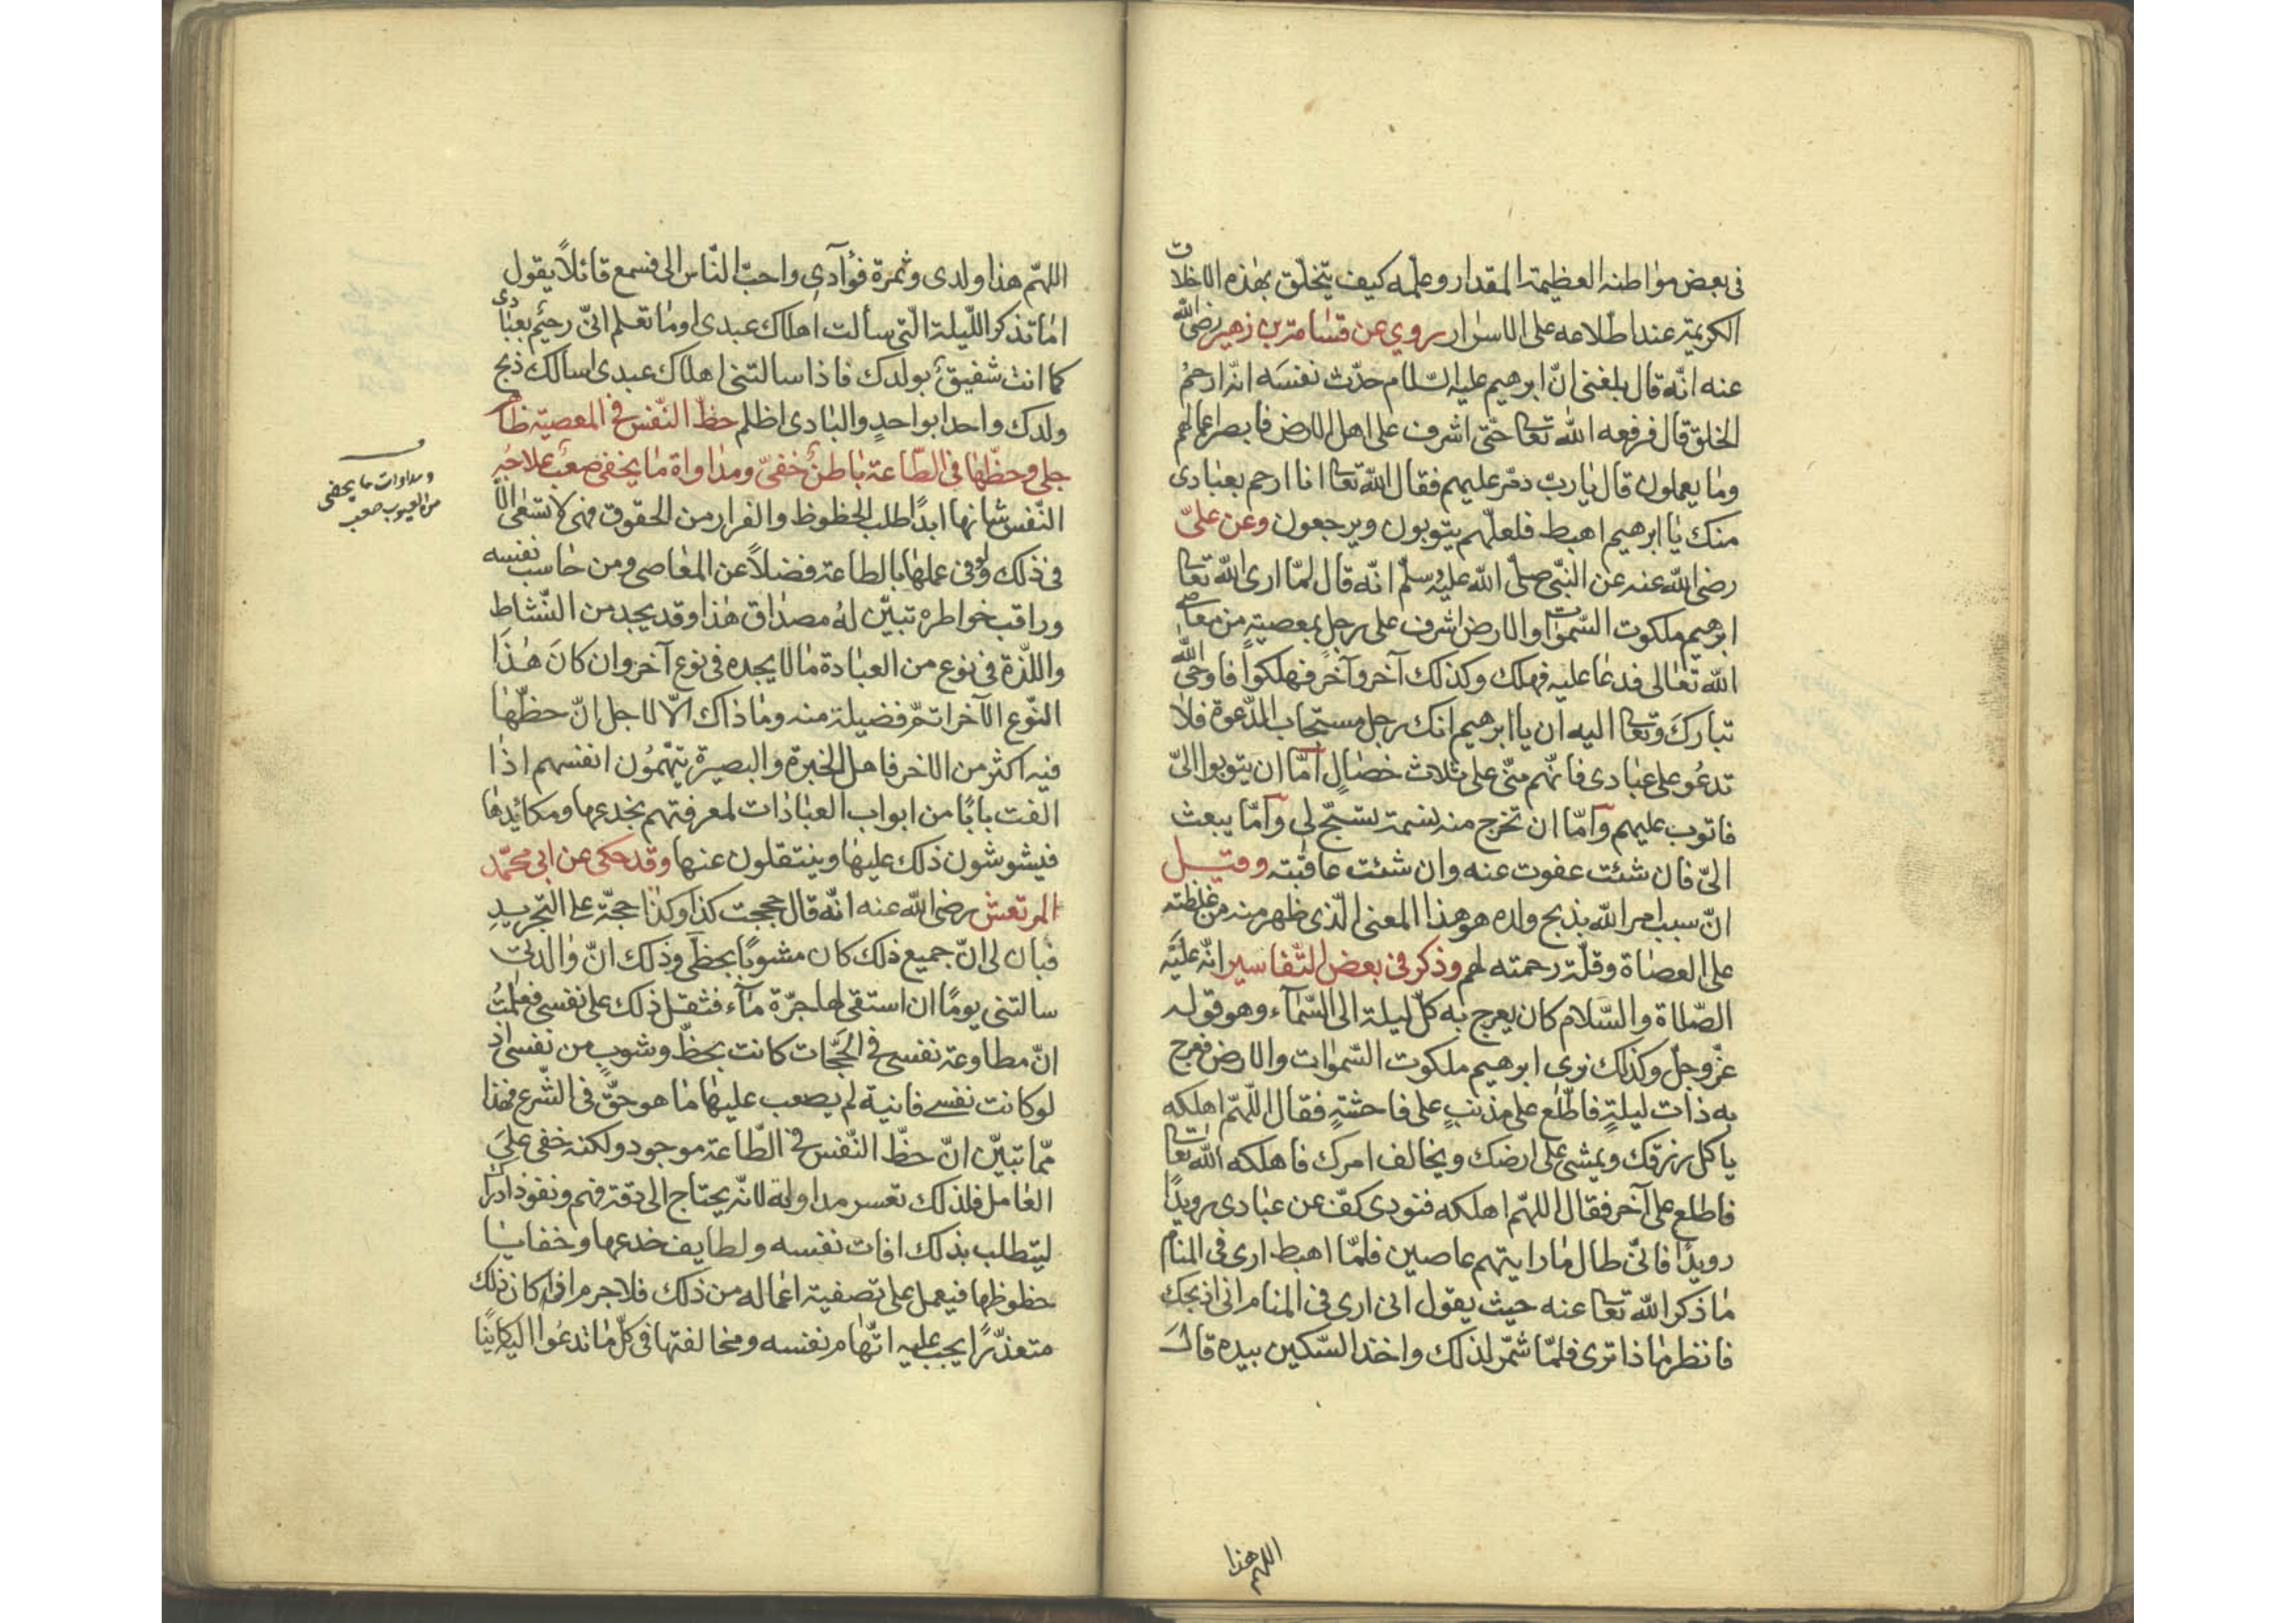 فى بعض مواطنه العظيمة المقدار وعلمه كيف يتخلّق بهذه الاخلاق
الكريمة عند اطلاعه على الاسرار روي عن قسامة بن زهير رضى الله
عنه انّه قال بلغنى انّ ابرهيم عليه السّلام حدّث نفسَه انّه ارحمُ
الخلق قال فرفعه الله تعا حتّى اشرف على اهل الارض فابصر اعمالهم
وما يعملون قال يا ربّ دمّر عليهم فقال الله تعا انا ارحم بعبادى
منك يا ابرهيم اهبط فلعلّهم يتوبون ويرجعون وعن علىّ
رضى الله عنه عن النبّى صلّى الله عليه وسلّم انّه قال لمّا ارى الله تعا
ابرهيم ملكوت السّموات والارض اشرف على رجل بمعصيةٍ من معاصى
الله تعالى فدعا عليه فهلك وكذلك آخر وآخر فهلكوا فاوحى الله
تبارك وتعا اليه ان يا ابرهيم انك رجل مستجاب الدّعوة فلا
تدعُو على عبادى فانّهم منّى على ثلاث خصالٍ امّا ان يتوبوا الىّ
فاتوب عليهم وامّا ان تخرج منه نسمة تسبّح لى وامّا يبعث
الىّ فان شئت عفوت عنه وان شئت عاقبته وقيل
انّ سبب امر الله بذبح ولده هو هذا المعنى الّذى ظهر منه من غلظته
على العصاة وقلّة رحمته لهم وذكر فى بعض التّفاسير انّه عليه
الصّلاة والسّلام كان يعرج به كلّ ليلة الى السّمآء وهو قوله
عزّ وجلّ وكذلك نرى ابرهيم ملكوت السّموات والارض فعرج
به ذات ليلةٍ فاطّلع على مذنبٍ على فاحشةٍ فقال اللّهمّ اهلكه
ياكل رزقك ويمشى على ارضك ويخالف امرك فاهلكه الله تعا
فاطلع على آخر فقال اللهمّ اهلكه فنودى كفّ عن عبادى رويدًا
رويدًا فانّى طال ما رايتهم عاصين فلمّا اهبط ارى فى المنام
ما ذكر الله تعا عنه حيث يقول انى ارى فى المنام انى اذبحك
فانظر ما ذا ترى فلمّا شمّر لذلك واخذ السّكين بيده قال
اللهم هذا
اللهمّ هذا ولدى وثمرة فؤآدى واحبّ النّاس الى فسمع قائلًا يقول
اما تذكر اللّيلة الّتى سألت اهلاك عبدى اوما تعلم انّى رحيم بعبادى
كما انت شفيق بولدك فاذا سالتنى اهلاك عبدى اسالك ذبح
ولدك واحدا بواحدٍ والبادى اظلم حظّ النّفس فى المعصيّة ظاهر
جلى وحظّها فى الطّاعة باطنٌ خفىّ ومداواة ما يخفى صعب علاجُه
النّفس شانها ابدًا طلب الحظوظ والفرار من الحقوق فهى لا تسعى الا
فى ذلك ولو فى عملها بالطاعة فضلًا عن المعاصى ومن حاسب نفسه
وراقب خواطره تبيّن لهُ مصداق هذا وقد يجد من النّشاط
واللّذة فى نوع من العبادة ما لا يجده فى نوع آخر وان كانَ هذَا
النّوع الآخر اتمّ فضيلة منه وما ذاك الّا لاجل انّ حظّها
فيه اكثر من الاخر فاهل الخبرة والبصيرة يتّهمُون انفسهم اذا
الفت بابًا من ابواب العبادات لمعرفتهم بخدعها ومكائدها
فيشوشون ذلك عليها وينتقلون عنها وقد حكى عن ابى محمّد
المرتعش رضى الله عنه انّه قال حججت كذا وكذا حجّة على التجريدِ
فبان لى انّ جميع ذلك كان مشوبًا بحظّى وذلك انّ والدتى
سالتنى يومًا ان استقى لها جرّة مآء فثقل ذلك على نفسى فعلمتُ
انّ مطاوعة نفسى فى الحجّات كانت بحظّ وشوبٍ من نفسى اذ
لو كانت نفسى فانية لم يصعب عليها ما هو حقّ فى الشّرع فهذا
ممّا تبيّن انّ حظّ النّفس فى الطّاعة موجود ولكنه خفى علىَ
العامل فلذلك تعسر مداواته لانّه يحتاج الى دقة فهم ونفوذ ادراك
ليتطلب بذلك افات نفسه ولطايف خدعها وخفايا
حظوظها فيعمل على تصفية اعماله من ذلك فلا جرم اذا كان ذلك
متعذّرًا يجب عليه اتّهام نفسه ومخالفتها فى كلّ ما تدعُوا اليه كاينًا
ومداوات ما يخفى
من العيوب صعب